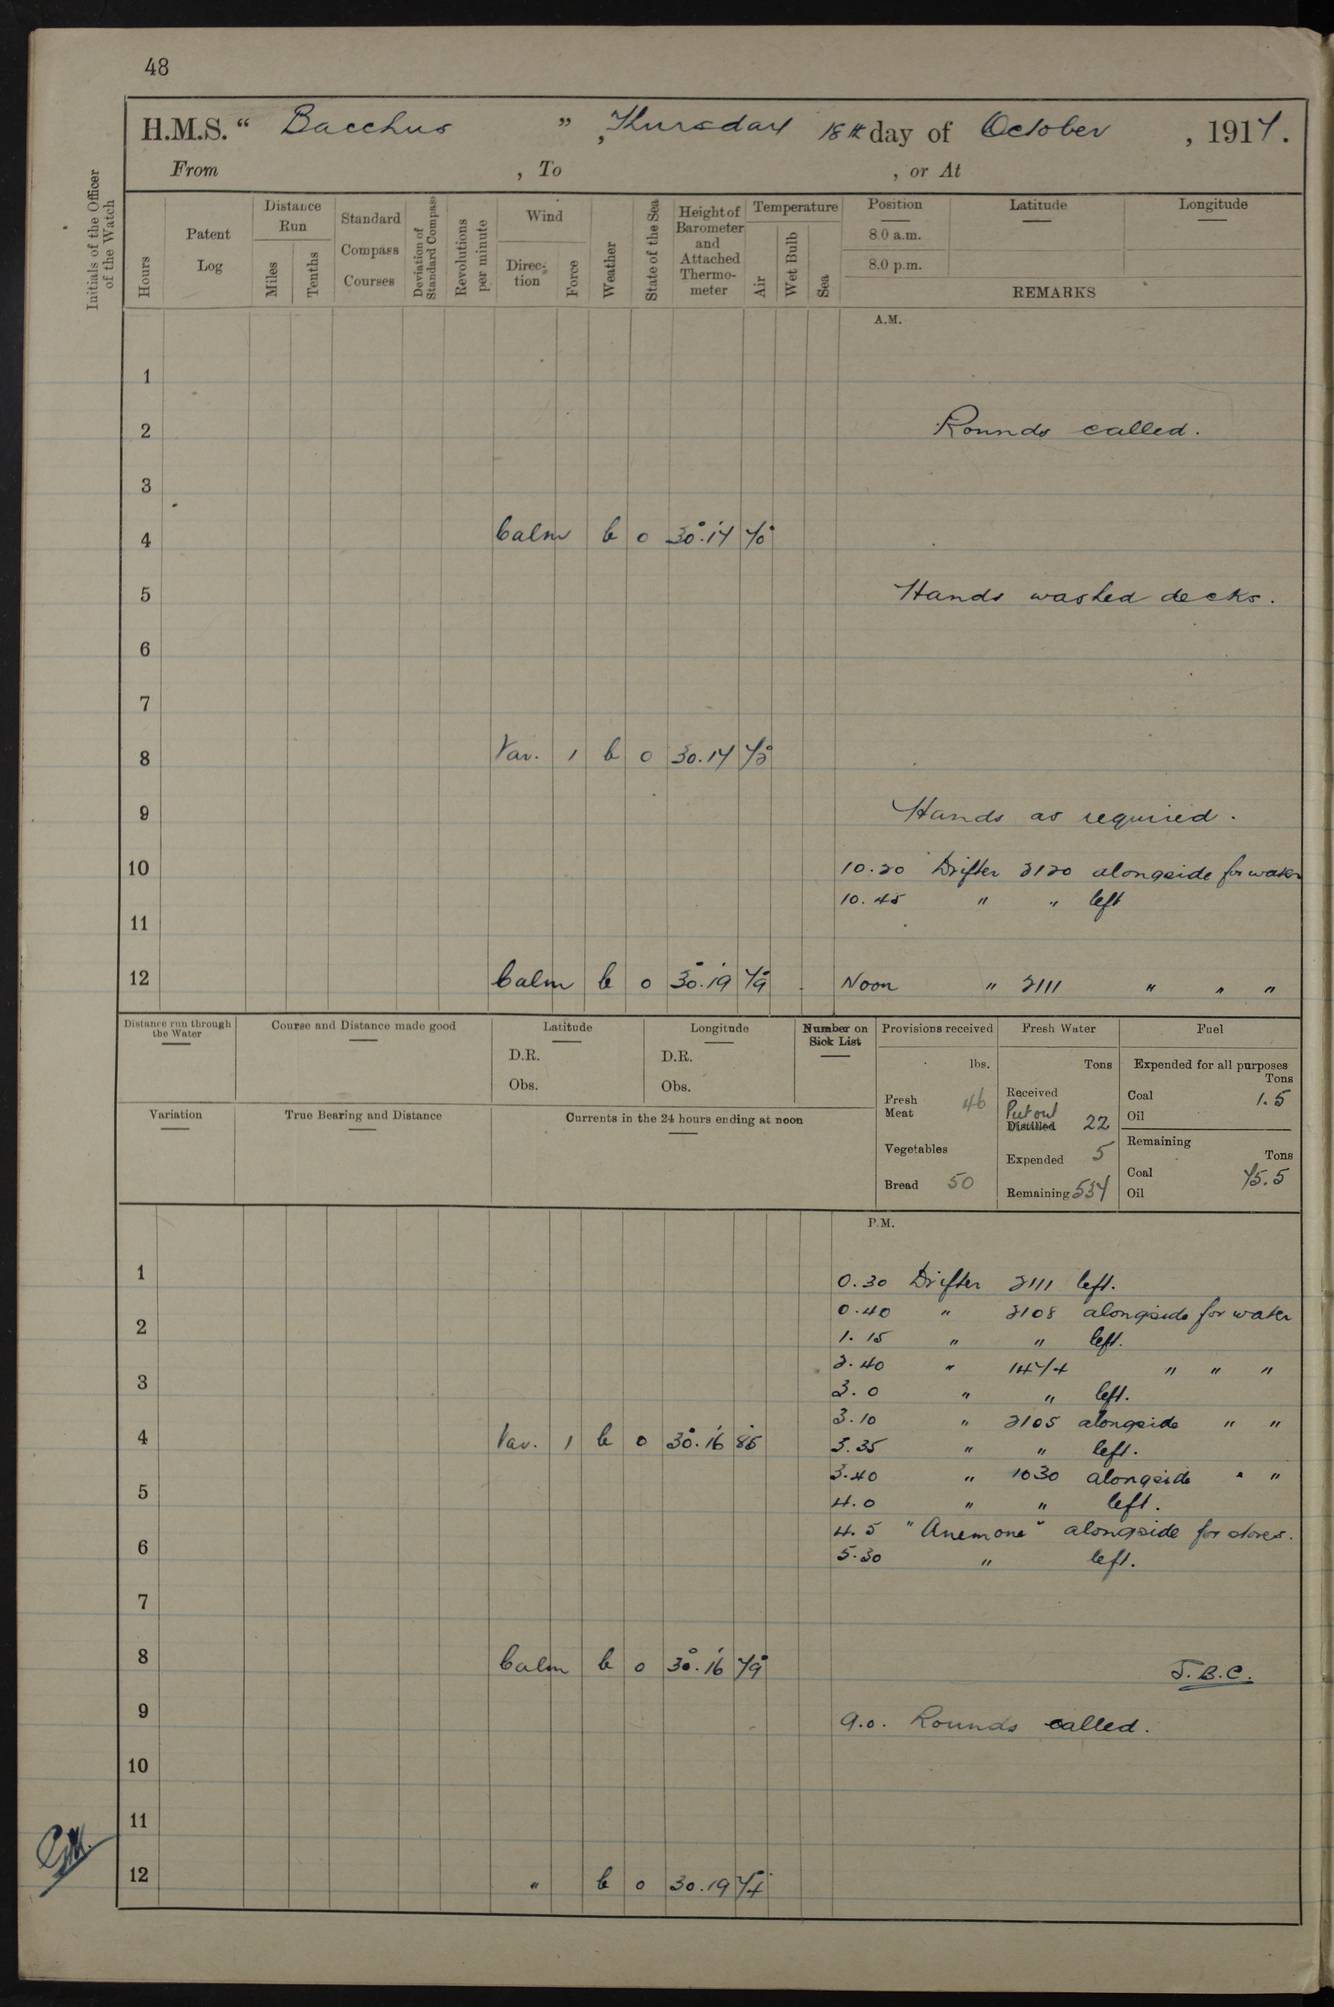 48
H.M.S. “ Bacchus ” , Thursday 18th day of October , 1917.
From , To , or At
Initials of the Officer of the Watch
Hours
Patent Log
Distance Run
Miles
Tenths
Standard Compass Courses
Deviation of Standard Compass
Revolutions per minute
Wind
Direction
Force
Weather
State of the Sea
Height of Barometer and Attached Thermometer
Temperature
Air
Wet Bulb
Sea
Position
8.0 a.m.
8.0 p.m.
Latitude
Longitude
REMARKS
A.M.
1
2 Rounds called.
3
4 Calm b o 30.17 70
5 Hands washed decks.
6
7
8 Var. 1 b o 30.17 72
9 Hands as required.
10 10.20 Drifter 2120 alongside for water
10.45 " " left
11
12 Calm b o 30.19 79 Noon " 2111 " " "
Distance run through the Water
Course and Distance made good
Latitude
D.R.
Obs.
Longitude
D.R.
Obs.
Number on Sick List
Provisions received
lbs.
Fresh Meat 46
Vegetables
Bread 50
Fresh Water
Tons
Received
Put out
Distilled 22
Expended 5
Remaining 537
Fuel
Expended for all purposes
Tons
Coal 1.5
Oil
Remaining
Tons
Coal 75.5
Oil
Variation
True Bearing and Distance
Currents in the 24 hours ending at noon
P.M.
1 0.30 Drifter 2111 left.
0.40 " 2108 alongside for water
2 1.15 " " left.
2.40 " 1474 " " "
3 3.0 " " left.
3.10 " 2105 alongside " "
4 Var. 1 b o 30.16 85 3.35 " " left.
3.40 " 1030 alongside " "
5 4.0 " " left.
4.5 "Anemone" alongside for stores.
6 5.30 " left.
7
8 Calm b o 30.16 79 J.B.C.
9 9.0. Rounds called.
10
11
12 " b o 30.19 74